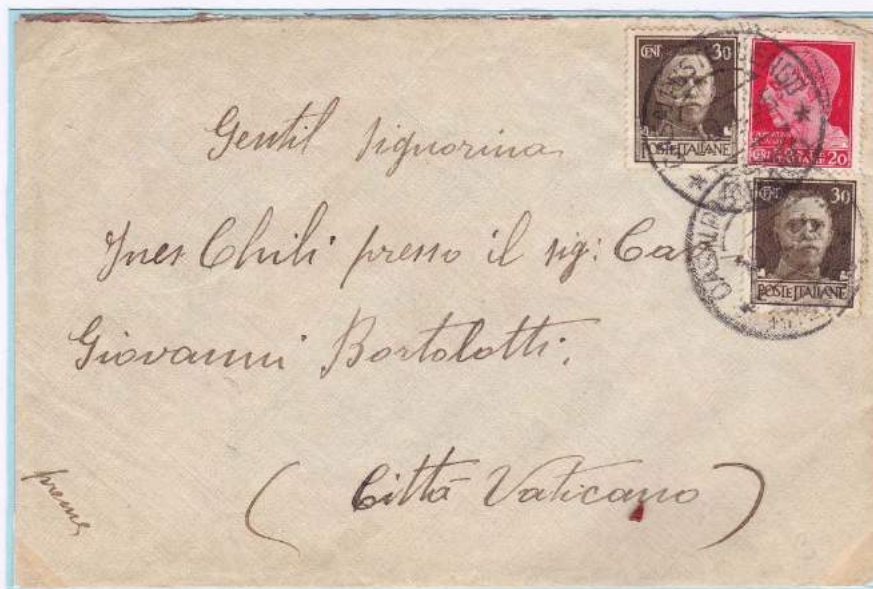 CENT 30
POSTE ITALIANE
20
CENT 30
POSTE ITALIANE
Gentil Signorina
Ines Chili presso il sig: Cav
Giovanni Bortolotti;
preme
( Città Vaticano )